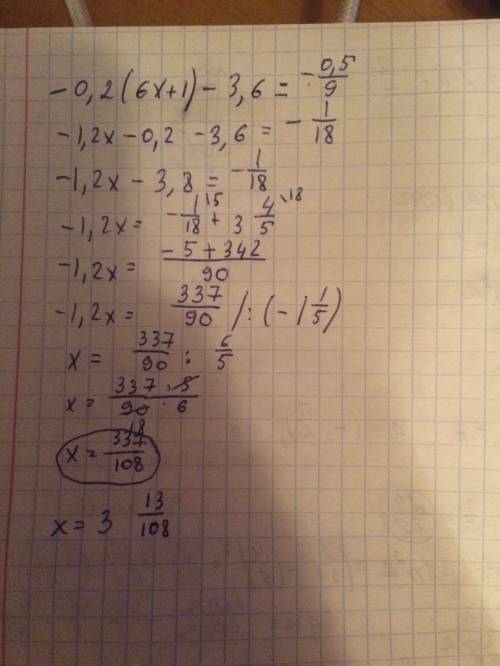 -0,2(6x+1) - 3,6 = - 0,5/9
-1,2x - 0,2 - 3,6 = - 1/18
-1,2x - 3,8 = - 1/18
-1,2x = - 1/18 \5 + 3 4/5 \18
-1,2x = (-5 + 342)/90
-1,2x = 337/90 / : (-1 1/5)
x = 337/90 : 6/5
x = (337 · 5)/(90 · 6)
18
x = 337/108
x = 3 13/108